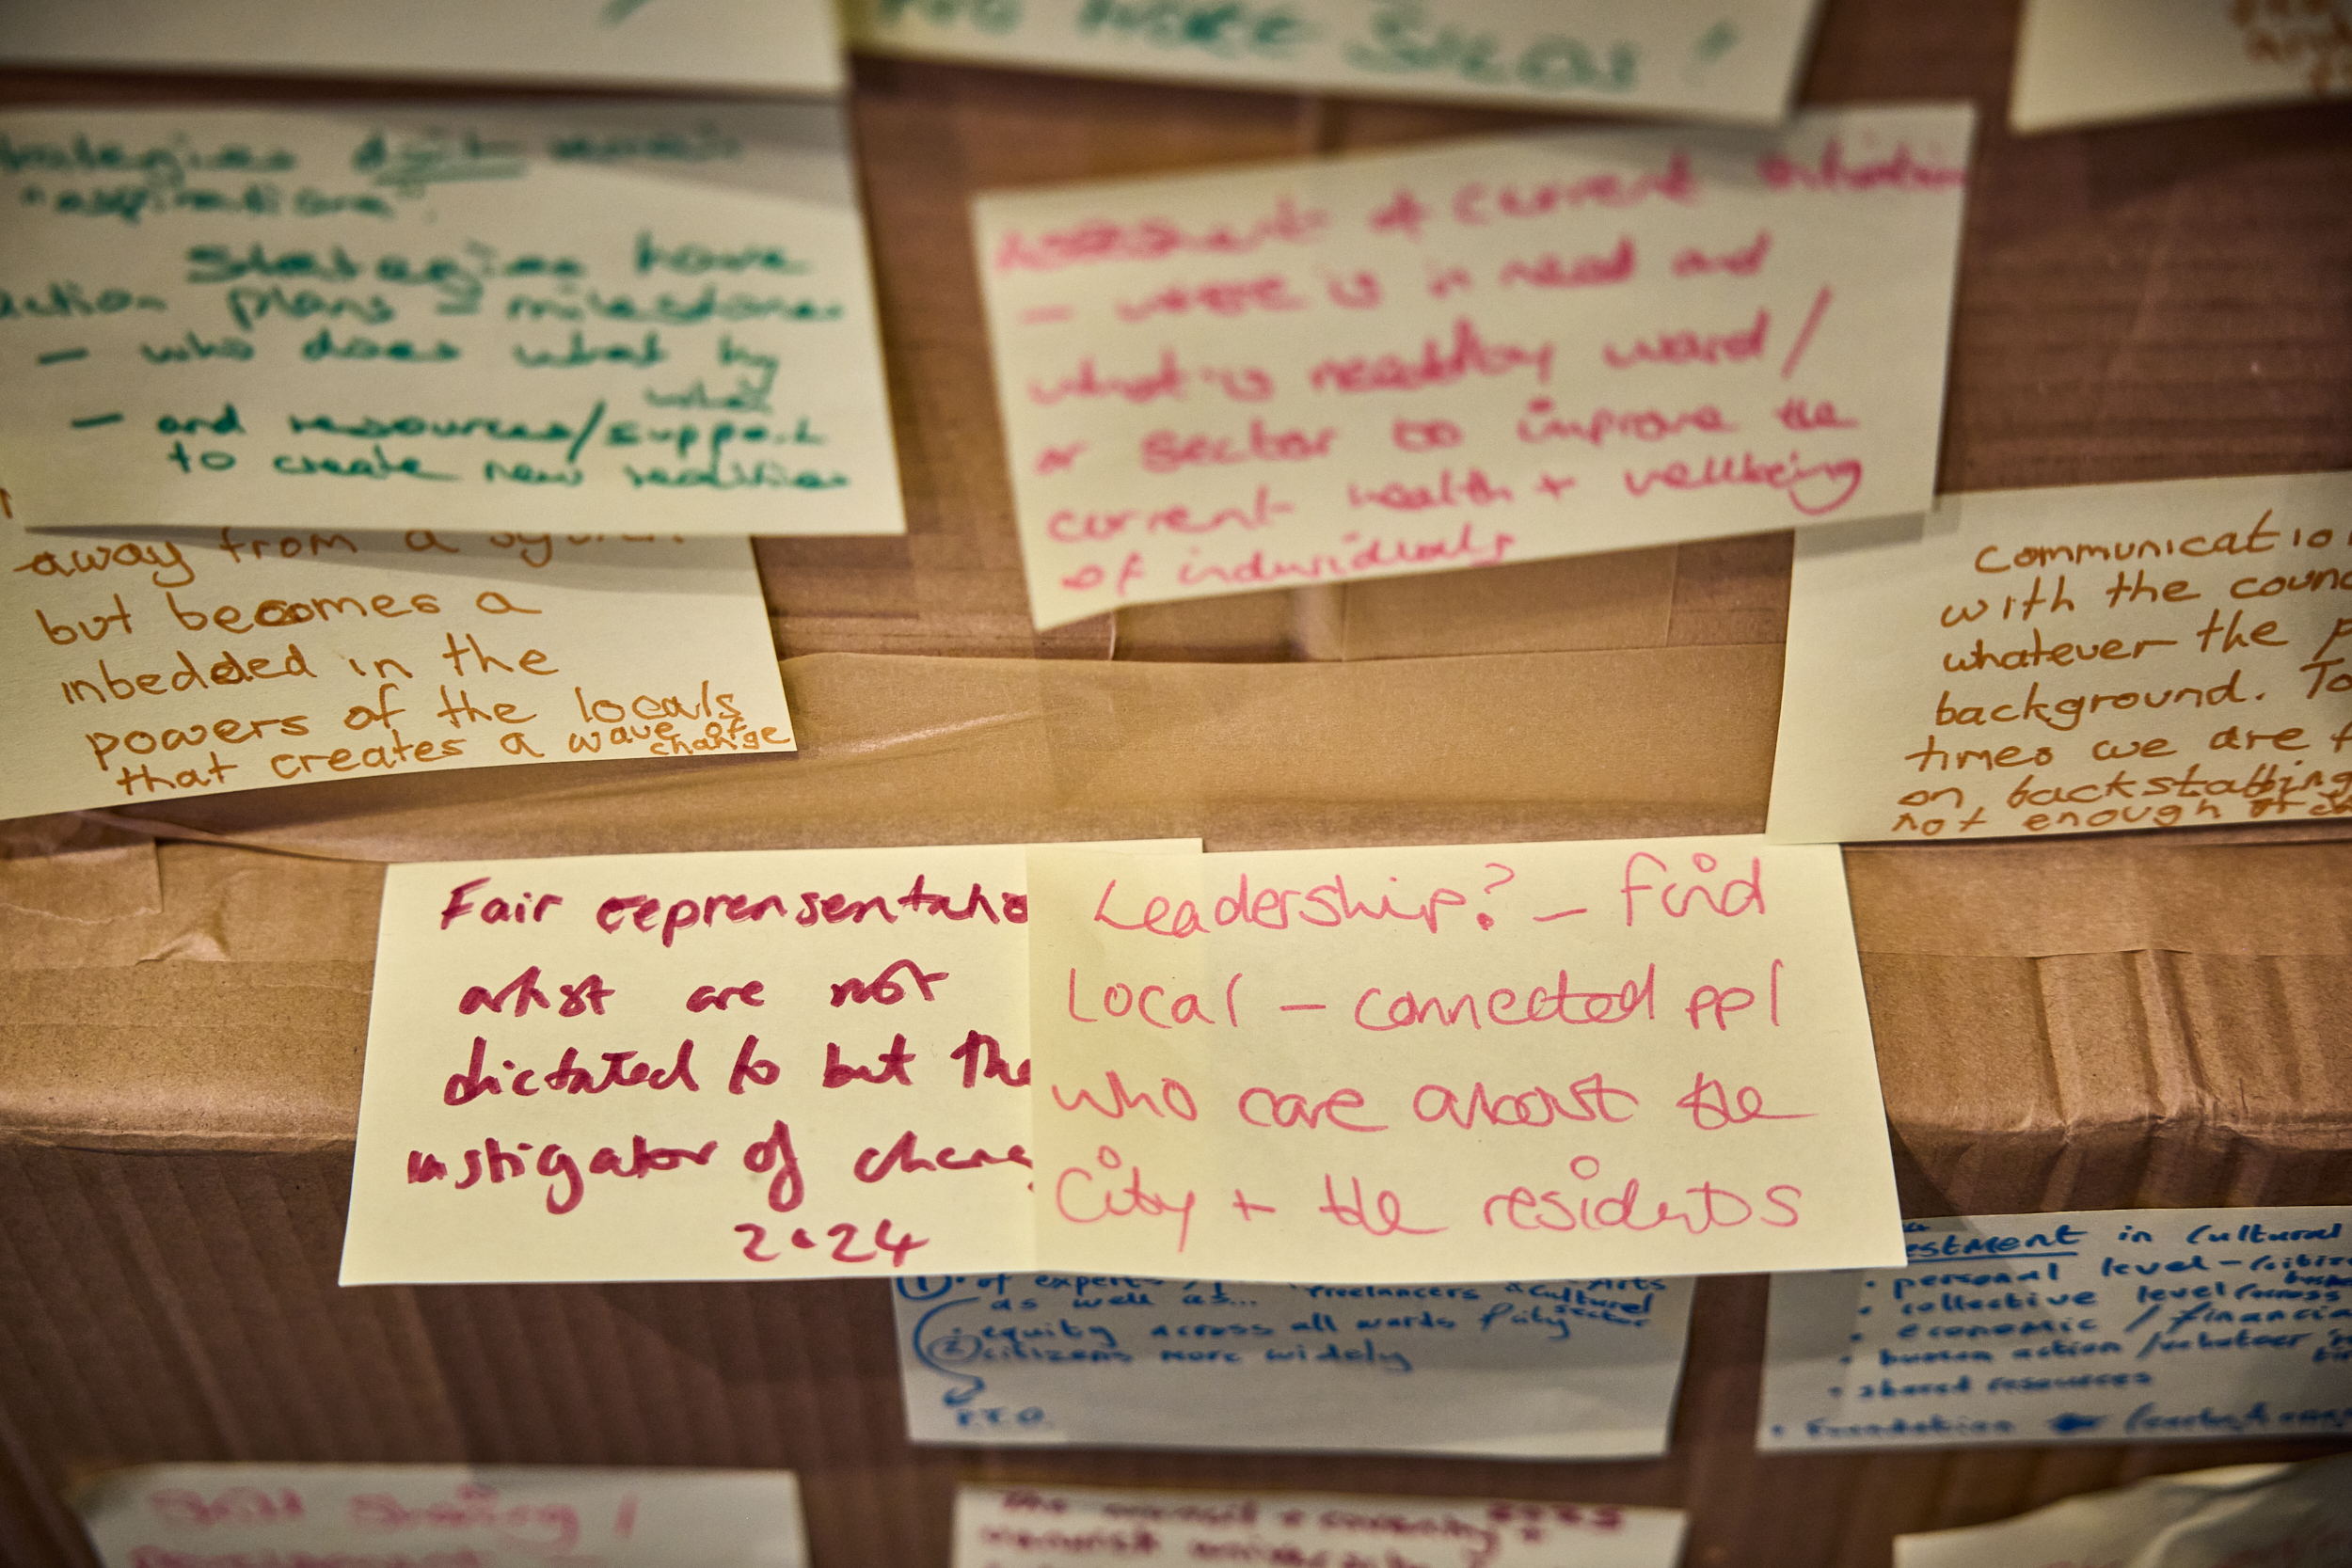 NO MORE SILOS!
strategies don't remain
"aspirations".
strategies have
action plans = milestones
- who does what by
when
- and resources/support
to create new realities
Assessment of current
- where is in need and
what is needed by ward/
or sector to improve the
current health + wellbeing
of individuals
away from a
but becomes a
inbedded in the
powers of the locals
that creates a wave of
change
communicatio
with the counc
whatever the p
background. To
times we are f
on, backstabbing
not enough of
Fair reprensentatio
artist are not
dictated to but the
instigator of chang
2024
Leadership? - find
Local - connected ppl
who care about the
City + the residents
① . of experts freelancers Arts
as well as... cultural
sector
. equity across all wards of city
② citizens more widely
P.T.O.
estment in Cultural
• personal level - citize
• collective level (across
• economic / financia
• human action / volunteer
• shared resources
• Foundation
Skill Sharing /
The council + coventry
warwick university